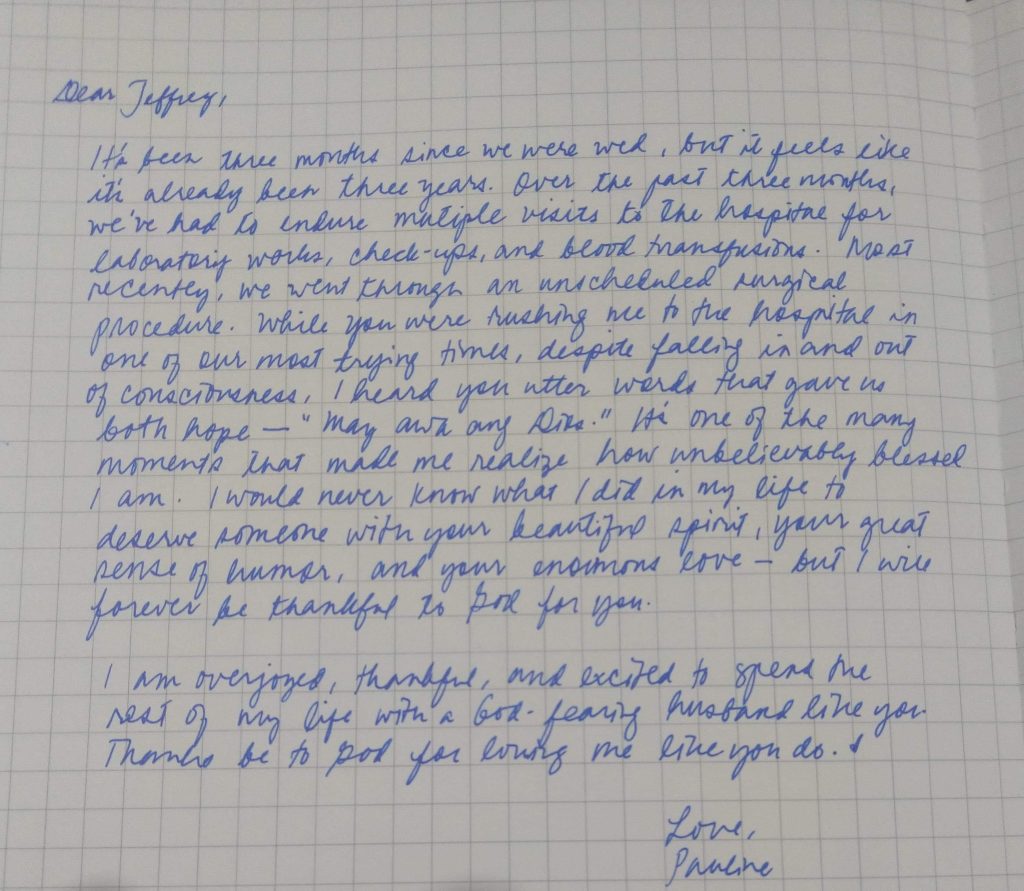 Dear Jeffrey,
It's been three months since we were wed, but it feels like
it's already been three years. Over the past three months,
we've had to endure mutiple visits to the hospital for
laboratory works, check-ups, and blood transfusions. Most
recently, we went through an unscheduled surgical
procedure. While you were rushing me to the hospital in
one of our most trying times, despite falling in and out
of consciousness, I heard you utter words that gave us
both hope — "May awa ang Dios." It's one of the many
moments that made me realize how unbelievably blessed
I am. I would never know what I did in my life to
deserve someone with your beautiful spirit, your great
sense of humor, and your enormous love — but I will
forever be thankful to God for you.
I am overjoyed, thankful, and excited to spend the
rest of my life with a God-fearing husband like you.
Thanks be to God for loving me like you do.
Love,
Pauline